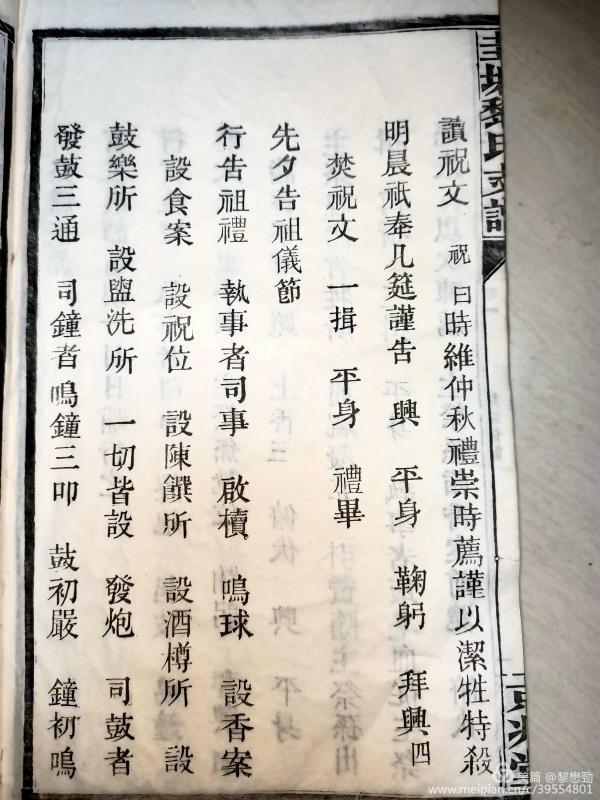 讀祝文 祝曰時維仲秋禮崇時薦謹以潔牲特殺
明晨祇奉几筵謹告 興 平身 鞠躬 拜興四
焚祝文 一揖 平身 禮畢
先夕告祖儀節
行告祖禮 執事者司事 啟櫝 鳴球 設香案
設食案 設祝位 設陳饌所 設酒樽所 設
鼓樂所 設盥洗所 一切皆設 發炮 司鼓者
發鼓三通 司鐘者鳴鐘三叩 鼓初嚴 鐘初鳴
美篇 @黎懋勁
www.meipian.cn/c/39554801